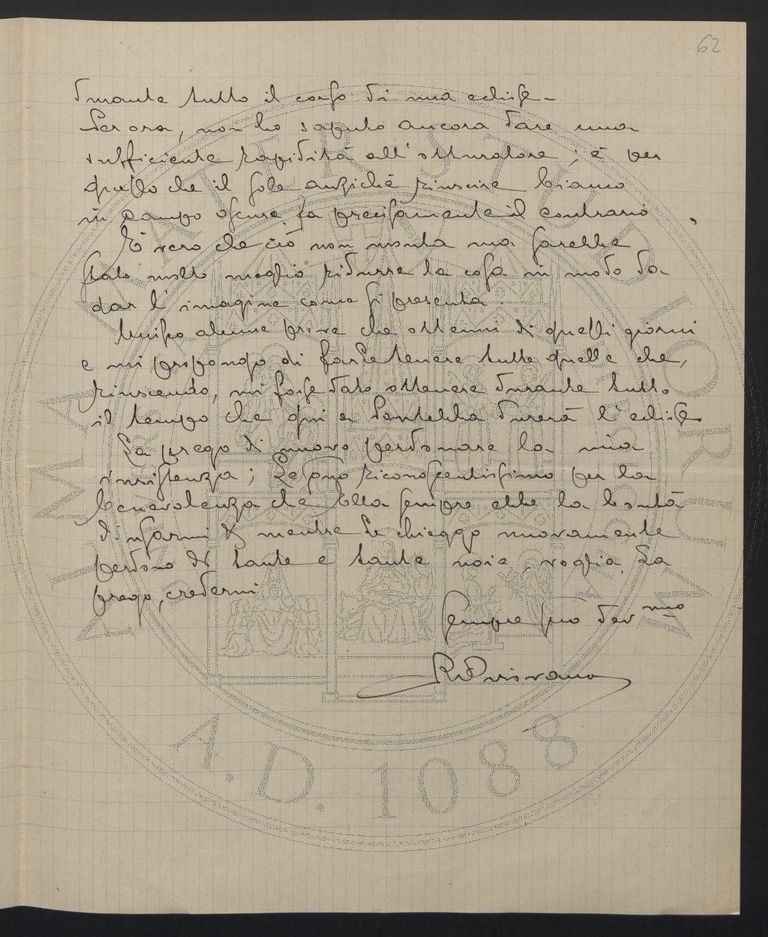 62
durante tutto il corso di una eclisse -
Per ora, non ho saputo ancora dare una
sufficiente rapidità all'otturatore; è per
quello che il sole anziché riuscire bianco
in campo oscuro, fa precisamente il contrario.
È vero che ciò non monta ma sarebbe
stato molto meglio ridurre la cosa in modo da
dar l'imagine come si presenta.
Unisco alcune prove che ottenni di questi giorni
e mi propongo di farLe tenere tutte quelle che,
riuscendo, mi fosse dato ottenere durante tutto
il tempo che qui a Pantelleria durerà l'eclisse
La prego di nuovo perdonare la mia
insistenza; Le sono riconoscentissimo per la
benevolenza che Ella sempre ebbe la bontà
di usarmi & mentre Le chieggo nuovamente
perdono di tante e tante noie, voglia, La
prego, credermi
Sempre suo dev mo
ALMA MATER STUDIORUM
A.D. 1088